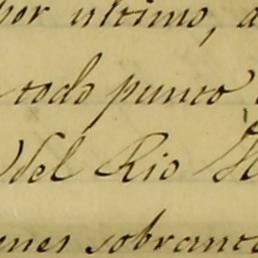 por ultimo, a
todo punto
del Rio
sobrant